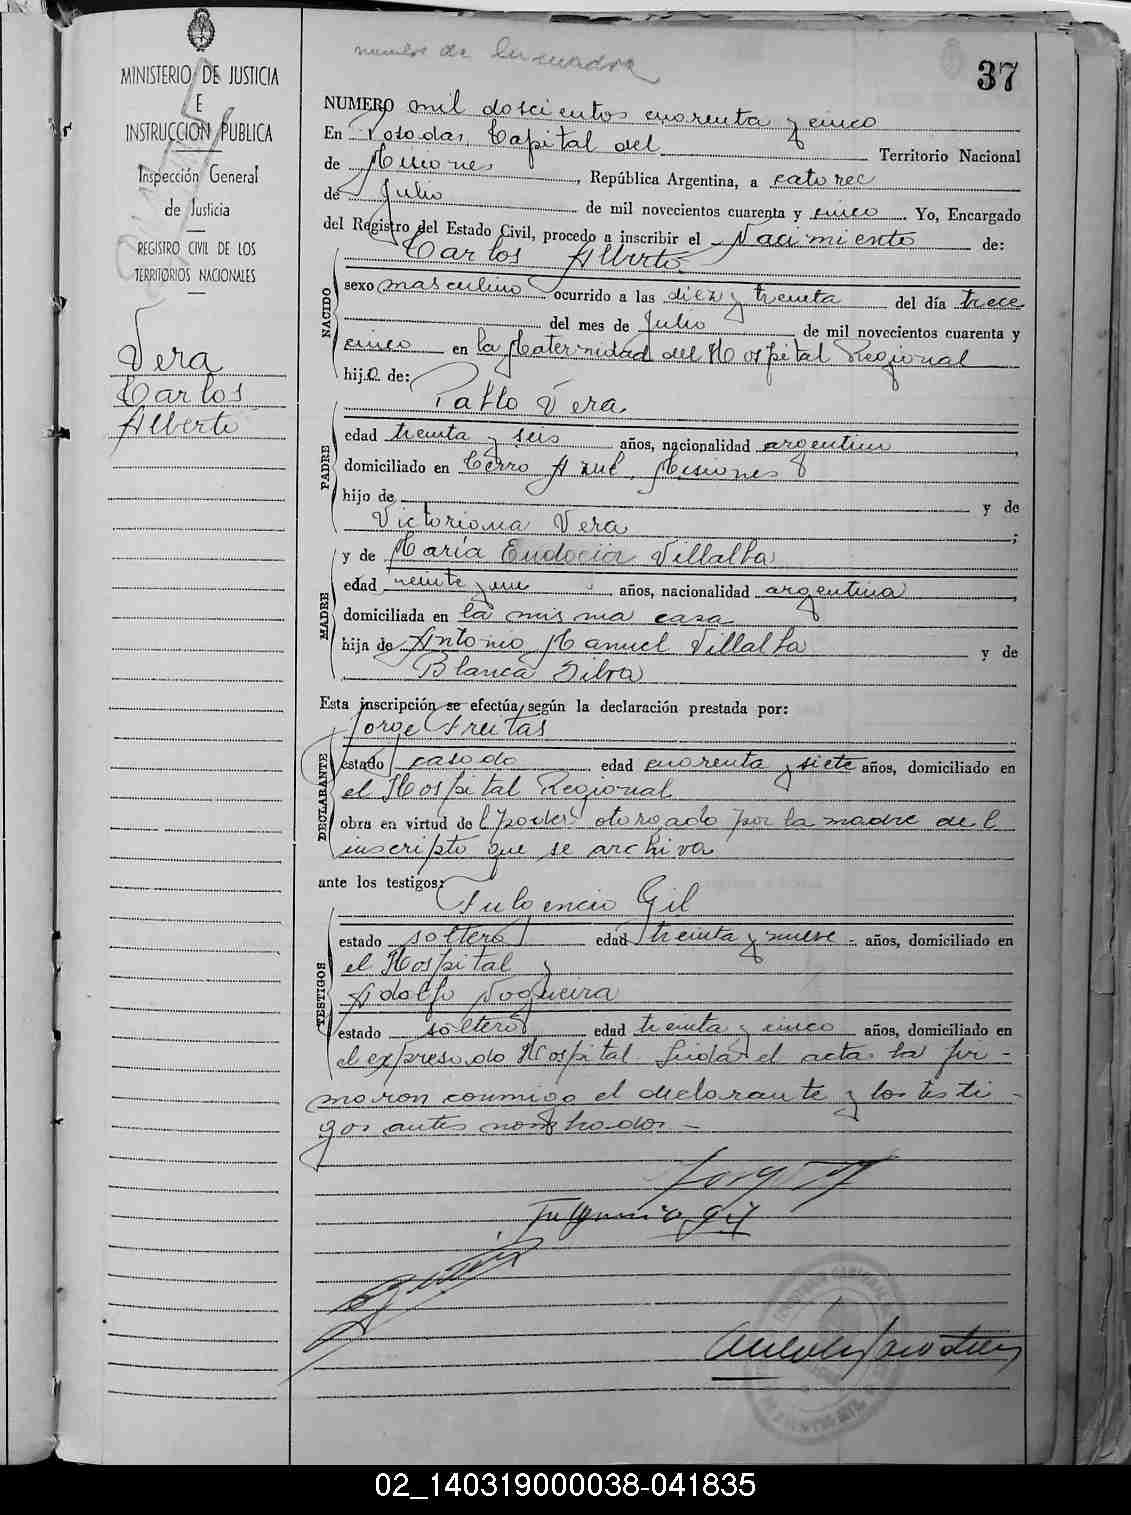 MINISTERIO DE JUSTICIA
E
INSTRUCCION PUBLICA
Inspección General
de Justicia
REGISTRO CIVIL DE LOS
TERRITORIOS NACIONALES
Vera
Carlos
Alberto
numero de
37
NUMERO mil doscientos cuarenta y cinco
En Posadas, Capital del Territorio Nacional
de Misiones, República Argentina, a catorce
de Julio de mil novecientos cuarenta y cinco. Yo, Encargado
del Registro del Estado Civil, procedo a inscribir el Nacimiento de:
Carlos Alberto
NACIDO
sexo masculino ocurrido a las diez y treinta del día trece
del mes de Julio de mil novecientos cuarenta y
cinco en la Maternidad del Hospital Regional
hijo de:
Pablo Vera
PADRE
edad treinta y seis años, nacionalidad argentino,
domiciliado en Cerro Azul, Misiones
hijo de y de
Victoriana Vera;
y de María Eudocia Villalba
MADRE
edad veinte y un años, nacionalidad argentina,
domiciliada en la misma casa
hija de Antonio Manuel Villalba y de
Blanca Silva
Esta inscripción se efectúa según la declaración prestada por:
Jorge Freitas
DECLARANTE
estado casado edad cuarenta y siete años, domiciliado en
el Hospital Regional
obra en virtud del poder otorgado por la madre del
inscripto que se archiva
ante los testigos:
Fulgencio Gil
TESTIGOS
estado soltero edad treinta y nueve - años, domiciliado en
el Hospital y
Adolfo Nogueira
estado soltero edad treinta y cinco años, domiciliado en
el expresado Hospital. Leída el acta la fir-
maron conmigo el declarante y los testi-
gos antes nombrados -
Fulgencio Gil
02_140319000038-041835